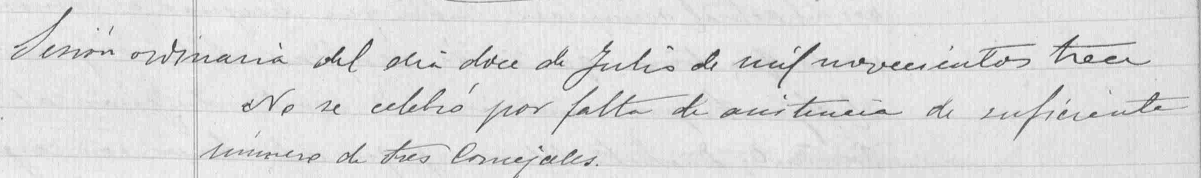 Sesión ordinaria del dia doce de Julio de mil novecientos trece
No se celebró por falta de asistencia de suficiente
número de tres Concejales.